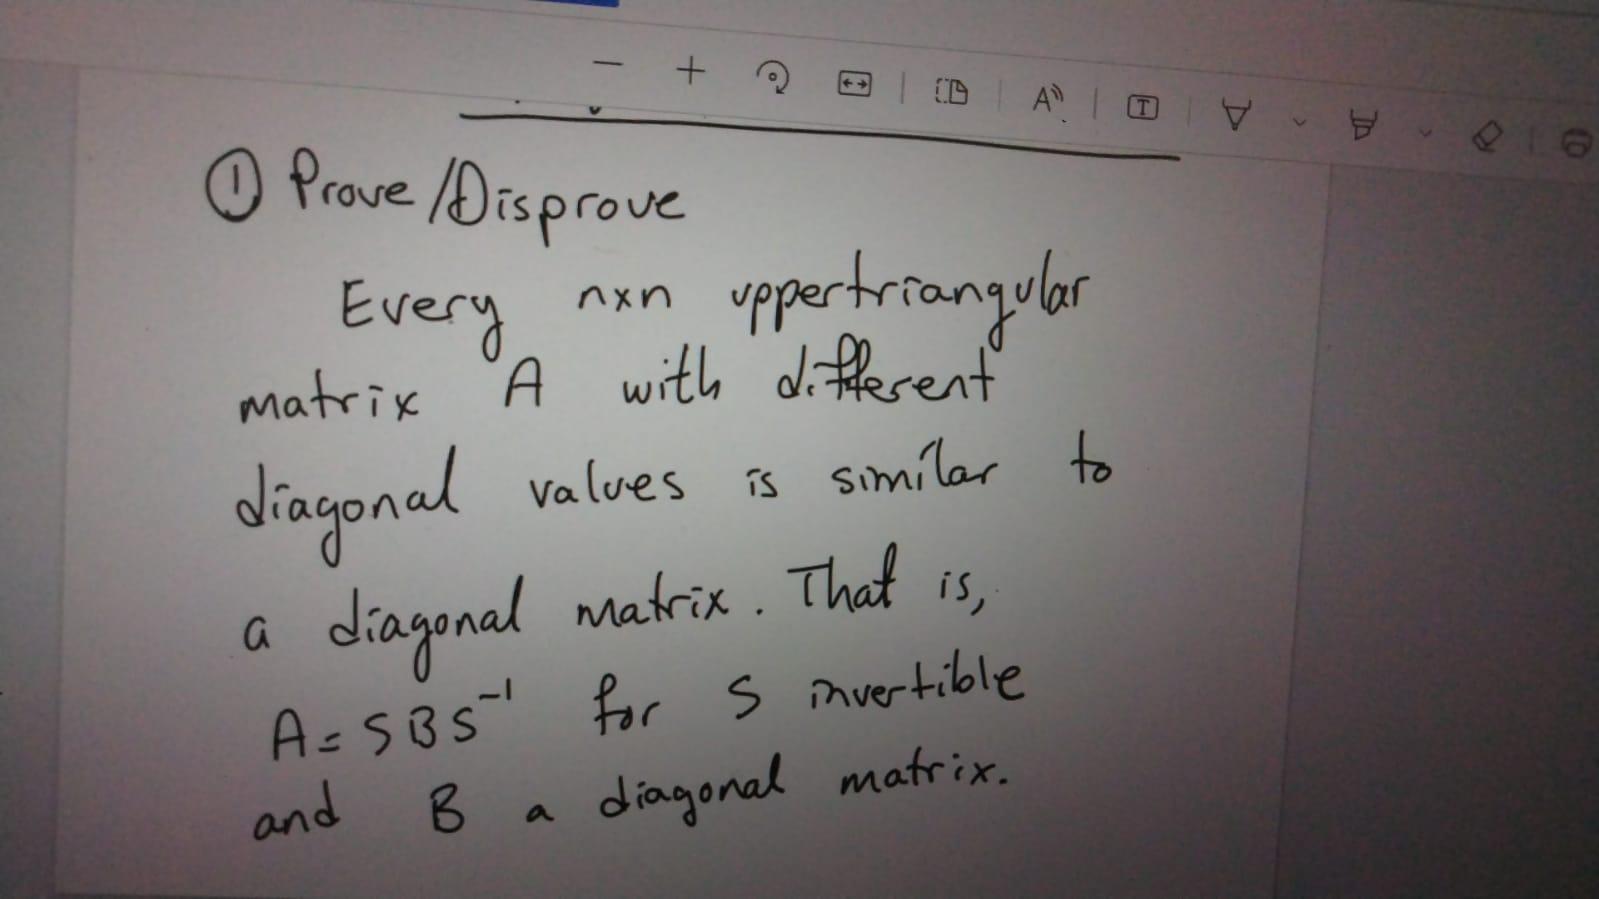 ① Prove/Disprove
Every nxn uppertriangular
matrix A with different
diagonal values is similar to
a diagonal matrix. That is,
A = SBS⁻¹ for S invertible
and B a diagonal matrix.